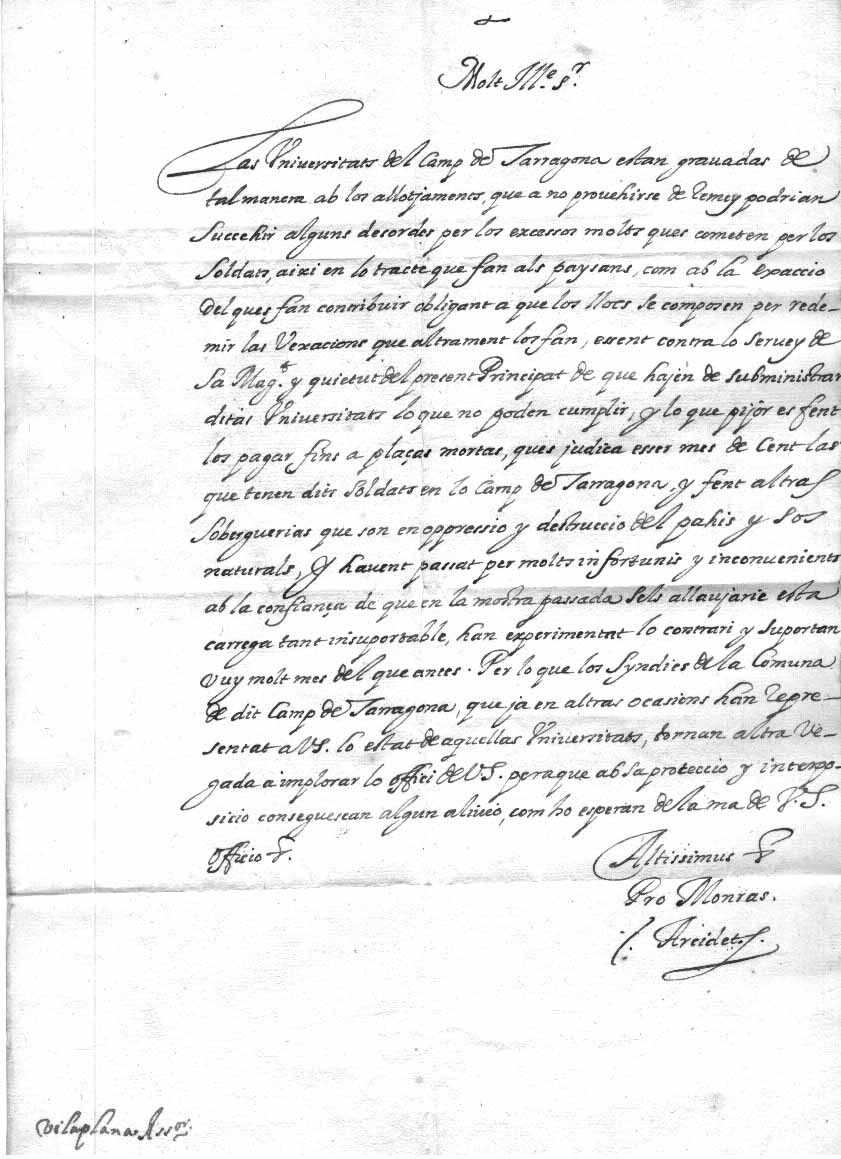 Molt Ille. Sr.
Las Universitats del Camp de Tarragona estan gravadas de
tal manera ab los allotjaments, que a no provehirse de remey podrian
Succehir alguns desordes per los excessos molts ques cometen per los
Soldats, aixi en lo tracte que fan als paysans, com ab la exaccio
del ques fan contribuir obligant a que los llocs se composen per rede-
mir las Vexacions que altrament los fan, essent contra lo servey de
Sa Magt. y quietut del present Principat de que hajen de subministrar
ditas Universitats lo que no poden cumplir, y lo que pijor es fent
los pagar fins a plaças mortas, ques judica esser mes de Cent las
que tenen dits Soldats en lo Camp de Tarragona, y fent altras
Soberguerias que son en oppressio y destruccio del pahis y sos
naturals, y havent passat per molts infortunis y inconvenients
ab la confiança de que en la mostra passada sels allaujarie esta
carrega tant insuportable, han experimentat lo contrari y suportan
vuy molt mes del que antes. Per lo que los Syndics de la Comuna
de dit Camp de Tarragona, que ja en altras ocasions han repre-
sentat a VS. lo estat de aquellas Universitats, tornan altra ve-
gada a implorar lo offici de VS. peraque ab sa proteccio y interpo-
sicio conseguescan algun alivio, com ho esperan de la ma de V.S.
Officio
Altissimus
Pro Monras.
Vilaplana Assor.